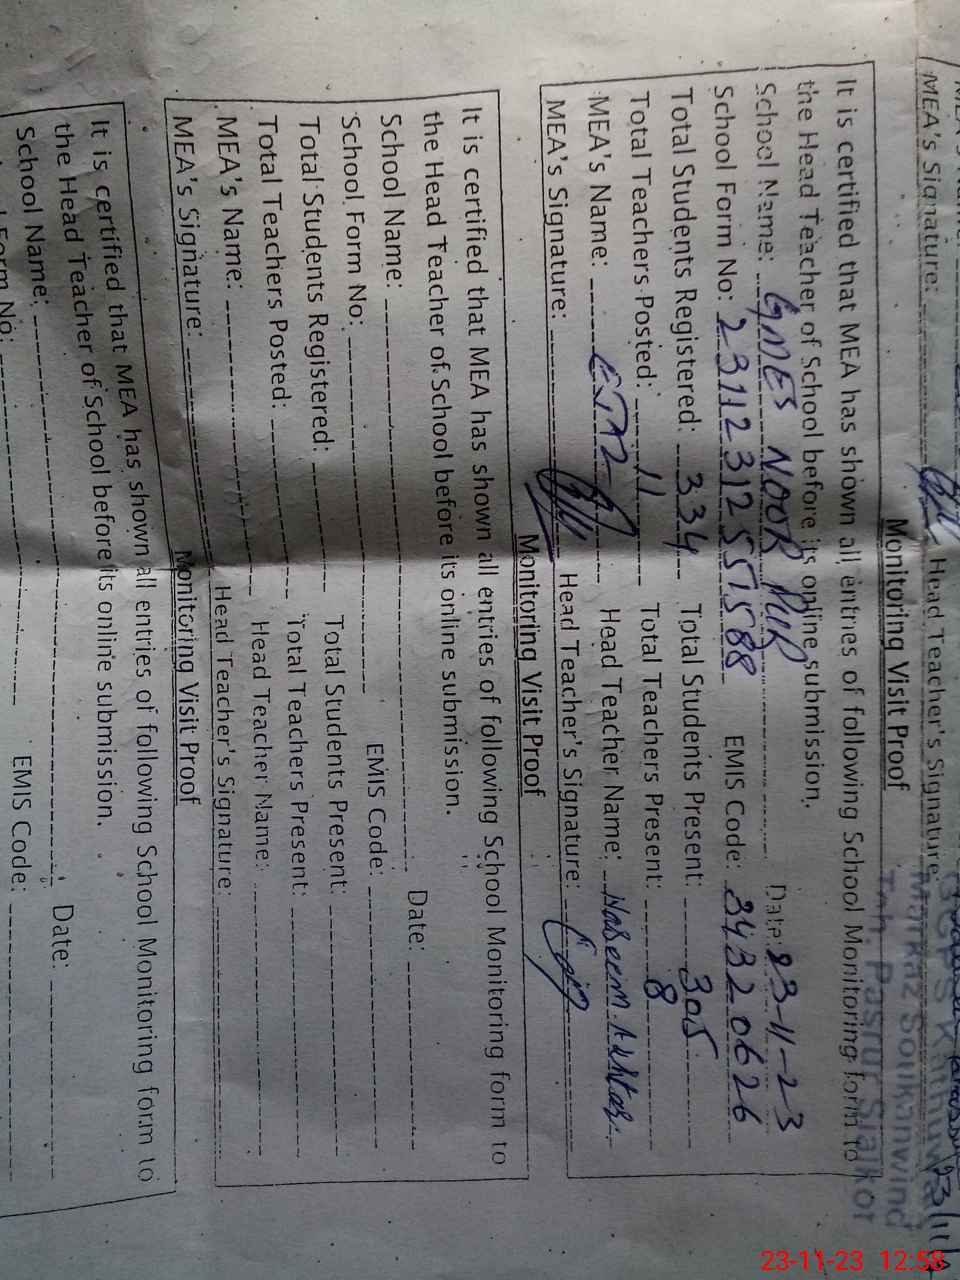 MEA's Signature: Head Teacher's Signature:
Markaz Soukanwind
Teh. Pasrur Sialkot
Monitoring Visit Proof
It is certified that MEA has shown all entries of following School Monitoring form to
the Head Teacher of School before its online submission.
School Name: GMES NOOR PUR Date: 23-11-23
School Form No: 23112312557588 EMIS Code: 34320626
Total Students Registered: 334 Total Students Present: 305
Total Teachers Posted: 11 Total Teachers Present: 8
MEA's Name: Head Teacher Name: Naseem Akhtar
MEA's Signature: Head Teacher's Signature:
Monitoring Visit Proof
It is certified that MEA has shown all entries of following School Monitoring form to
the Head Teacher of School before its online submission.
School Name: Date:
School Form No: EMIS Code:
Total Students Registered: Total Students Present:
Total Teachers Posted: Total Teachers Present:
MEA's Name: Head Teacher Name:
MEA's Signature: Head Teacher's Signature:
Monitoring Visit Proof
It is certified that MEA has shown all entries of following School Monitoring form to
the Head Teacher of School before its online submission.
School Name: Date:
Form No: EMIS Code:
23-11-23 12:58